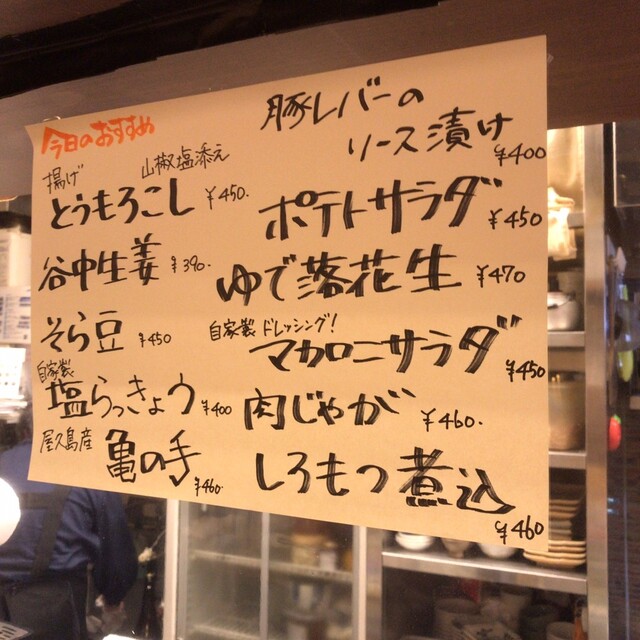 今日のおすすめ
揚げ 山椒塩添え
とうもろこし ¥450.
谷中生姜 ¥390.
そら豆 ¥450
自家製
塩らっきょう ¥400
屋久島産 亀の手 ¥460.
豚レバーの
ソース漬け ¥400
ポテトサラダ ¥450
ゆで落花生 ¥470
自家製ドレッシング!
マカロニサラダ ¥450
肉じゃが ¥460.
しろもつ煮込 ¥460